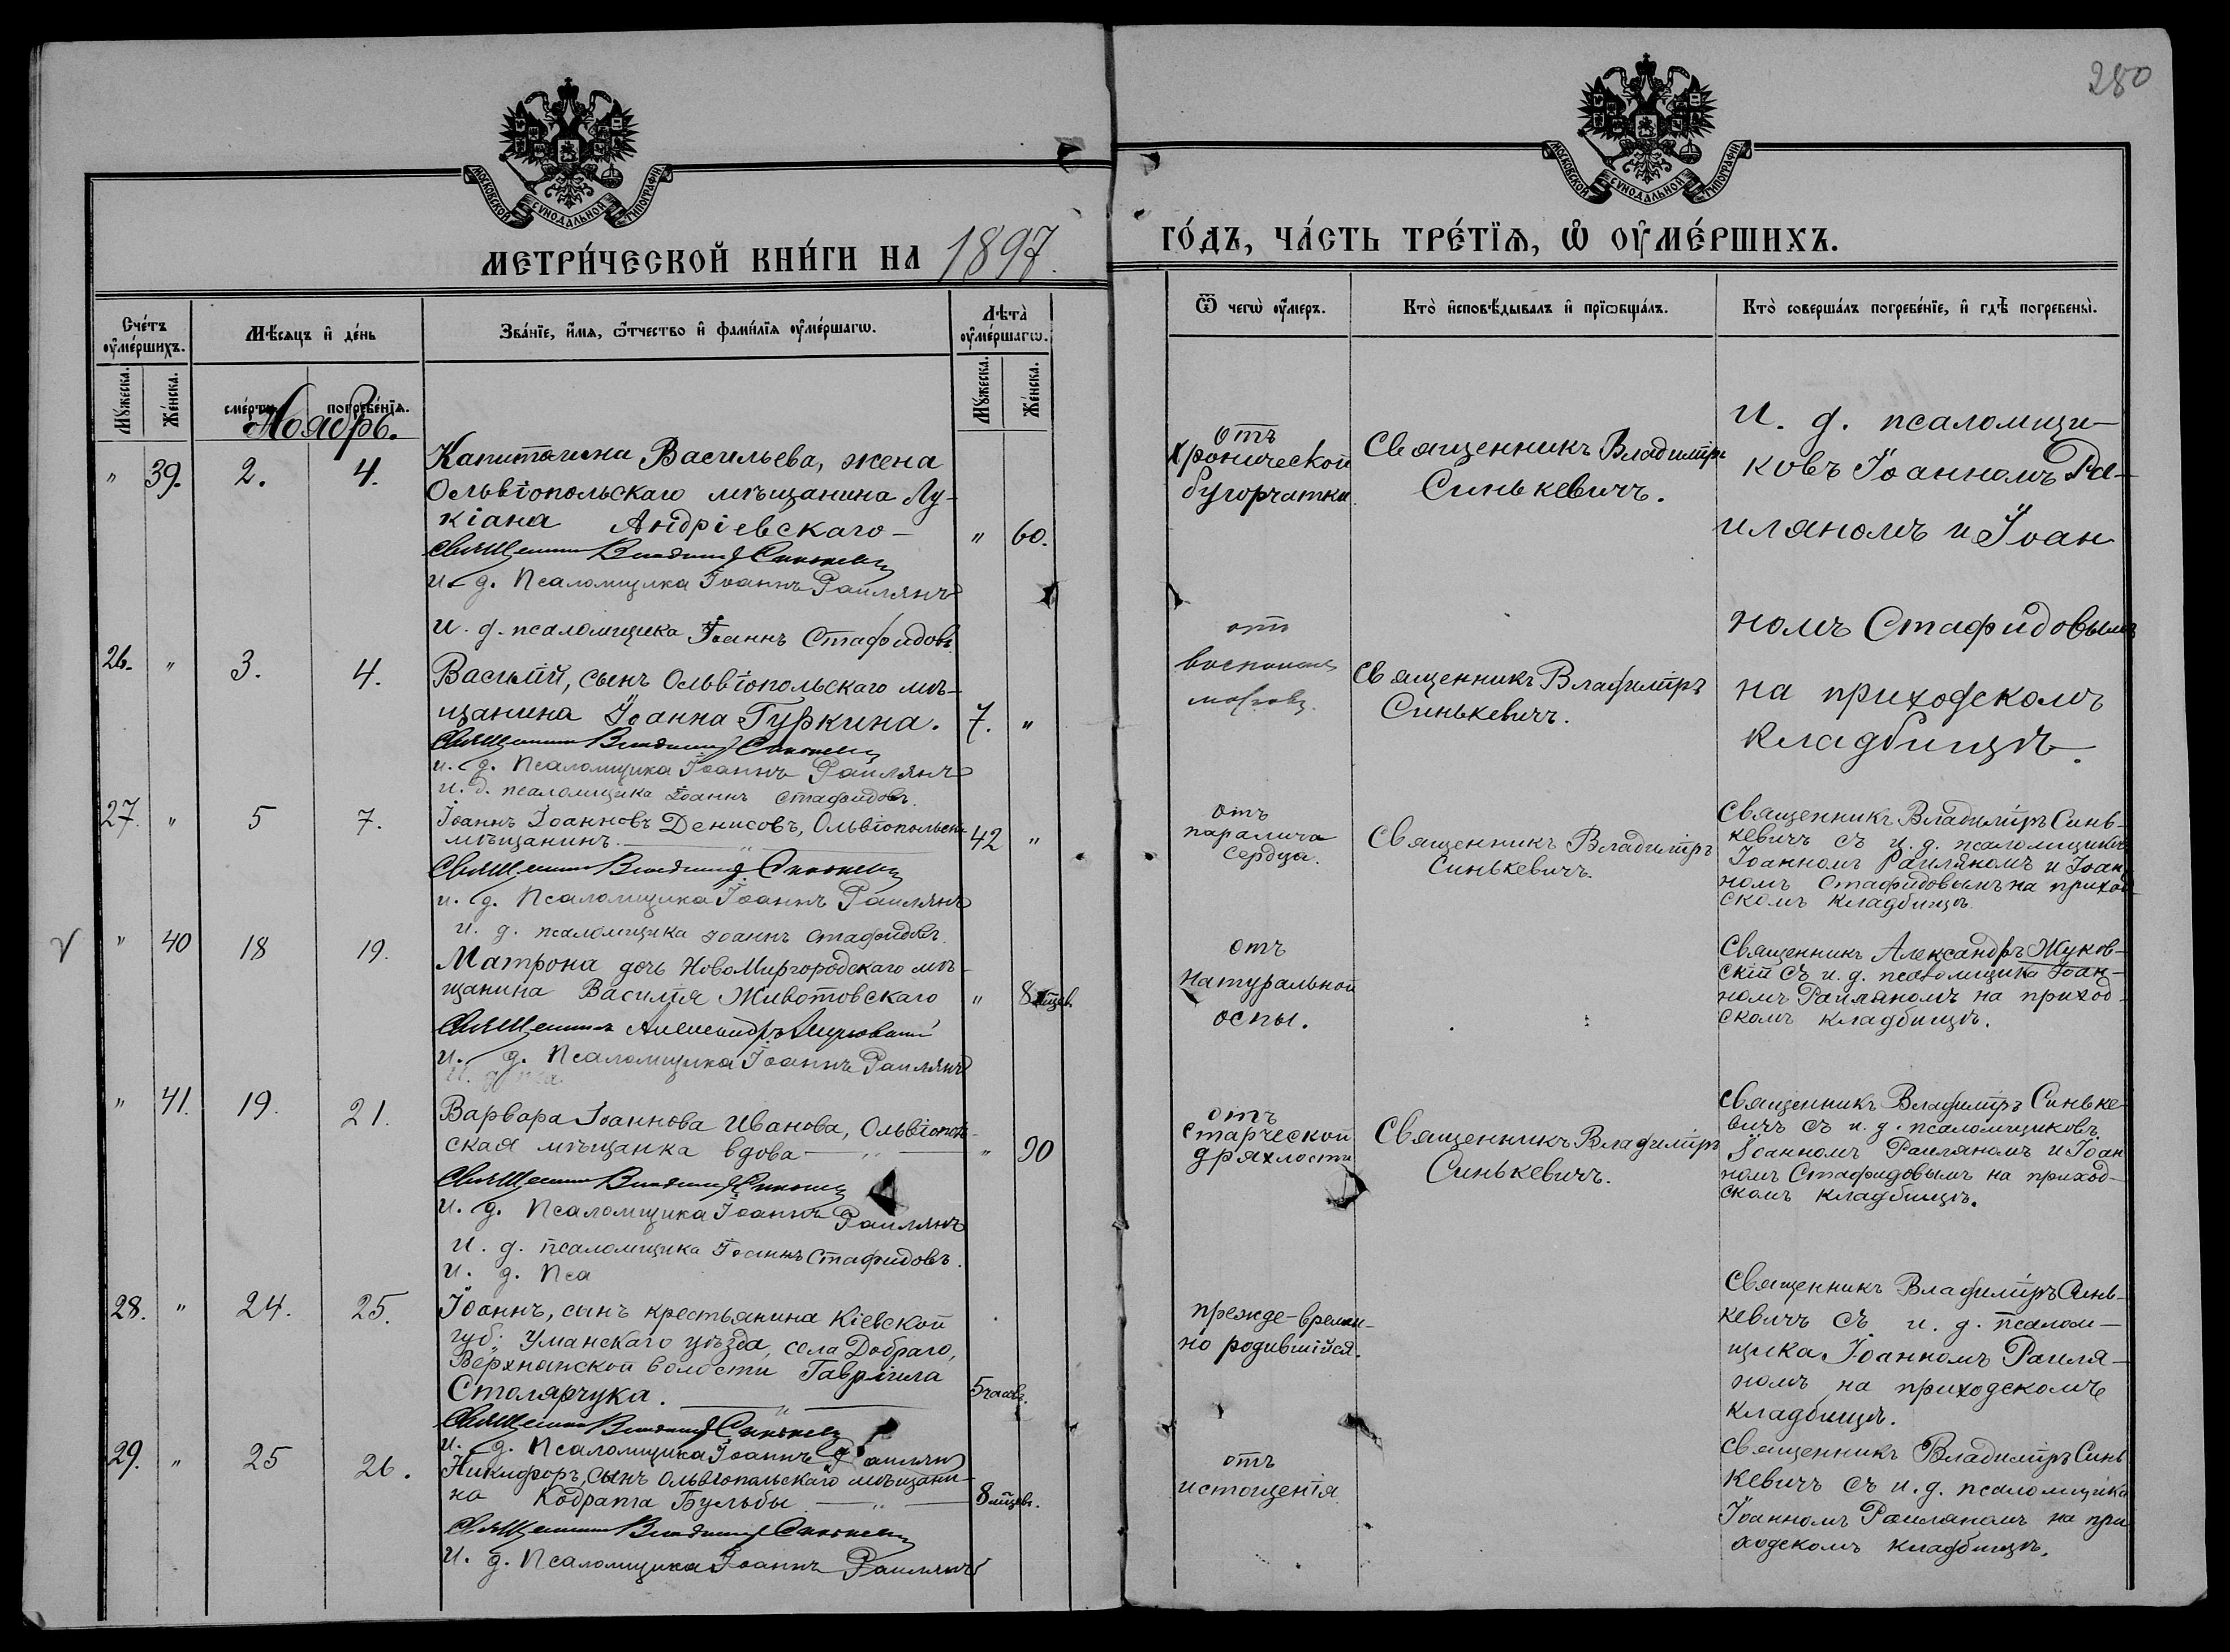 280
МОСКОВСКОЙ СѴНОДАЛЬНОЙ ТИПОГРАФІИ
МОСКОВСКОЙ СѴНОДАЛЬНОЙ ТИПОГРАФІИ
МЕТРИ́ЧЕСКОЙ КНИ́ГИ НА 1897.
ГО́ДЪ, ЧА́СТЬ ТРЕ́ТЇѦ, Ѽ ОУ҆МЕ́РШИХЪ.
Сче́тъ оу҆ме́ршихъ.
Мѣ́сѧцъ и҆ де́нь
Зва́нїе, и҆́мѧ, ѻ҆́тчество и҆ фами́лїѧ оу҆ме́ршагѡ.
Лѣта̀ оу҆ме́ршагѡ.
Мꙋ́жеска.
Же́нска.
сме́рти.
погребе́нїѧ.
Мꙋ́жеска.
Же́нска.
Ѿ чегѡ̀ оу҆́меръ.
Кто̀ и҆сповѣ́дывалъ и҆ прїѡбща́лъ.
Кто̀ соверша́лъ погребе́нїе, и҆ гдѣ̀ погребены̀.
Ноябрь.
" 39. 2. 4.
Капитолина Васильева, жена
Ольвіопольскаго мѣщанина Лу-
кіана Андріевскаго —
" 60.
Священникъ Владиміръ Синькевичъ
и. д. Псаломщика Іоаннъ Раилянъ
и. д. псаломщика Іоаннъ Стафидовъ
отъ
хронической
бугорчатки
Священникъ Владиміръ
Синькевичъ.
И. д. псаломщи-
ковъ Іоанномъ Ра-
иляномъ и Іоан
номъ Стафидовымъ
на приходскомъ
кладбищѣ.
26. " 3. 4.
Василій, сынъ Ольвіопольскаго мѣ-
щанина Іоанна Гуркина.
7. "
Священникъ Владиміръ Синькевичъ
и. д. Псаломщика Іоаннъ Раилянъ
и. д. псаломщика Іоаннъ Стафидовъ.
отъ
Священникъ Владиміръ
Синькевичъ.
27. " 5 7.
Іоаннъ Іоанновъ Денисовъ, Ольвіопольск.
мѣщанинъ. — " —
42 "
Священникъ Владиміръ Синькевичъ
и. д. Псаломщика Іоаннъ Раилянъ
и. д. псаломщика Іоаннъ Стафидовъ.
отъ
паралича
сердца.
Священникъ Владиміръ
Синькевичъ.
Священникъ Владиміръ Синь-
кевичъ съ и. д. псаломщиковъ
Іоанномъ Раиляномъ и Іоан
номъ Стафидовымъ на приход
скомъ кладбищѣ.
" 40 18 19.
Матрона дочь НовоМиргородскаго мѣ-
щанина Василія Животовскаго
" 8 мѣсяц.
Священникъ Александръ Жуковскій
и. д. Псаломщика Іоаннъ Раилянъ
отъ
Натуральной
оспы.
Священникъ Александръ Жуков-
скій съ и. д. псаломщика Іоан-
номъ Раиляномъ на приход-
скомъ кладбищѣ.
" 41. 19. 21.
Варвара Іоаннова Иванова, Ольвіополь-
ская мѣщанка вдова — " —
" 90
Священникъ Владиміръ Синькевичъ
и. д. Псаломщика Іоаннъ Раилянъ
и. д. псаломщика Іоаннъ Стафидовъ.
и. д. Пса
отъ
старческой
дряхлости
Священникъ Владиміръ
Синькевичъ.
Священникъ Владиміръ Синьке-
вичъ съ и. д. псаломщиковъ
Іоанномъ Раиляномъ и Іоан
номъ Стафидовымъ на приход-
скомъ кладбищѣ.
28. " 24. 25.
Іоаннъ, сынъ крестьянина Кіевской
губ. Уманскаго уѣзда, села Добраго,
Верхняжской волости Гавріила
Столярчука. — " —
5 часовъ.
Священникъ Владиміръ Синькевичъ
и. д. Псаломщика Іоаннъ Раилянъ
прежде-времен-
но родившійся.
Священникъ Владиміръ Синь-
кевичъ съ и. д. псалом-
щика Іоанномъ Раиля-
номъ на приходскомъ
кладбищѣ.
29. " 25 26.
Никифоръ, сынъ Ольвіопольскаго мѣщани-
на Кодрата Бульбы — " —
8 мѣсяц.
Священникъ Владиміръ Синькевичъ
И. д. Псаломщика Іоаннъ Раилянъ
отъ
истощенія
Священникъ Владиміръ Синь
кевичъ съ и. д. псаломщика
Іоанномъ Раиляномъ на при
ходскомъ кладбищѣ.